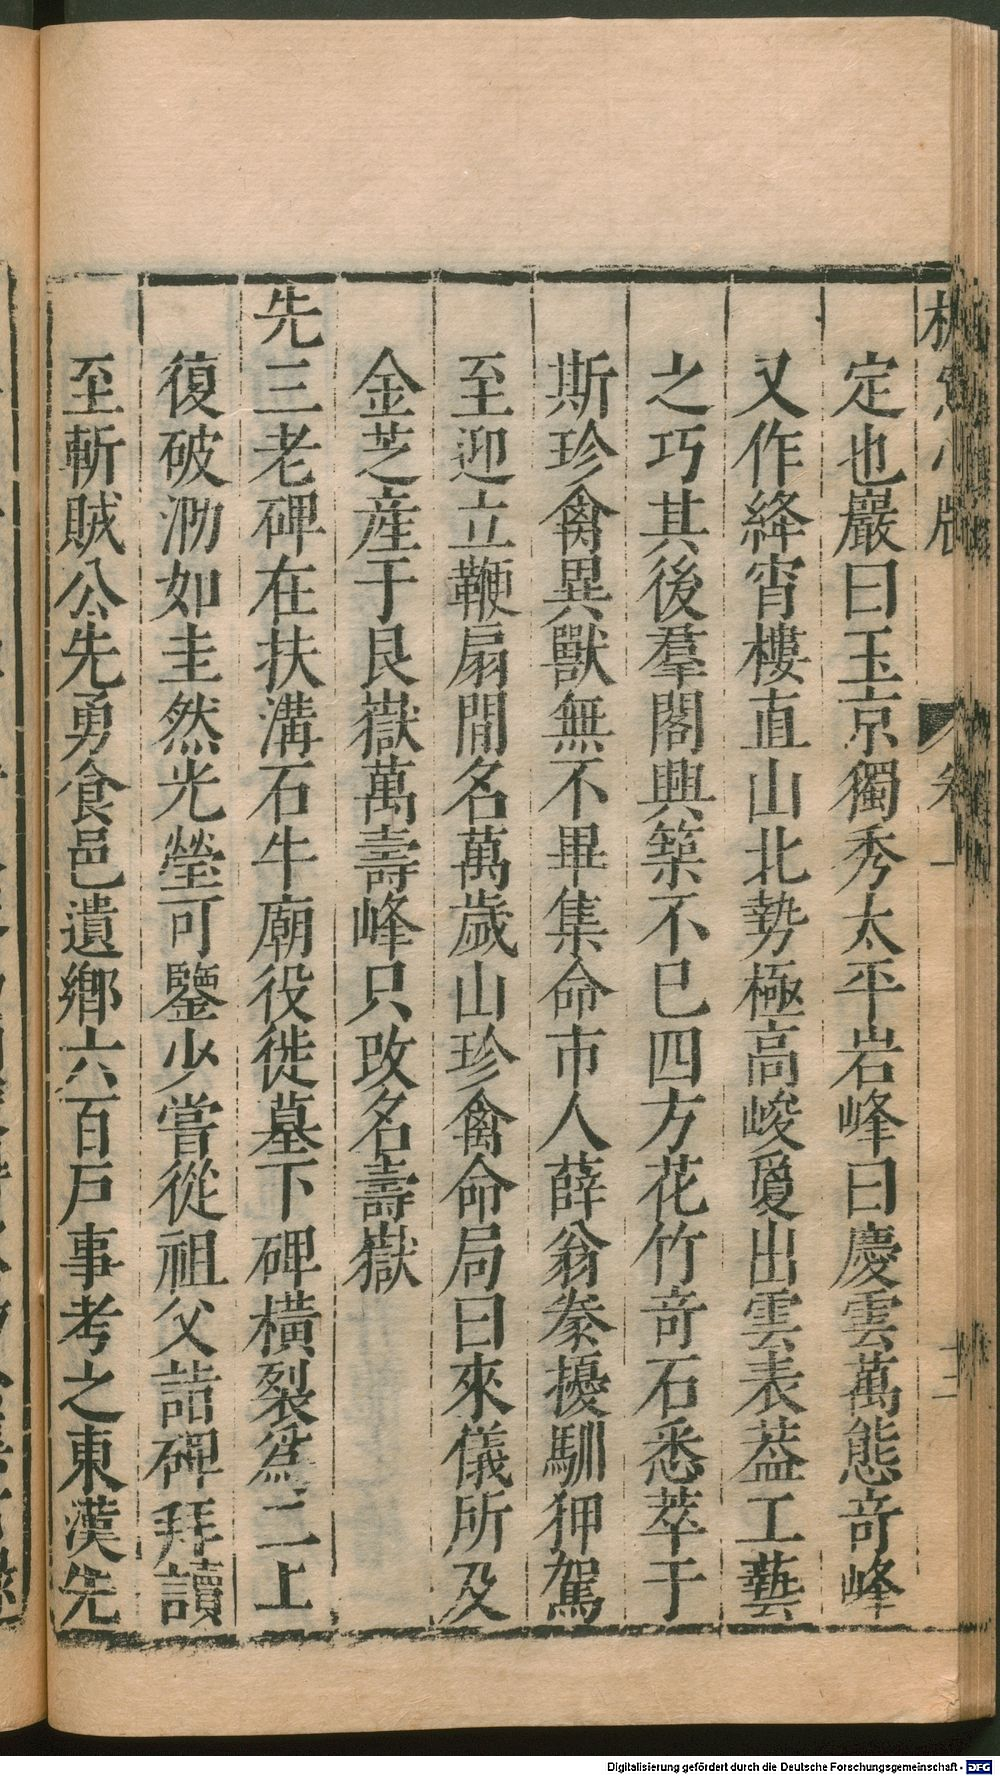 定也巖曰玉京獨秀太平岩峰曰慶雲萬態奇峰
又作絳宵樓直山北勢極高峻爰出雲表葢工藝
之巧其後羣閣興築不已四方花竹奇石悉萃于
斯珍禽異獸無不畢集命市人薛翁豢擾馴狎駕
至迎立鞭扇間名萬歲山珍禽命局曰來儀所及
金芝產于艮嶽萬壽峰只改名壽嶽
先三老碑在扶溝石牛廟役徙墓下碑橫裂爲二上
復破泐如圭然光瑩可鑒少嘗從祖父詣碑拜讀
至斬賊公先勇食邑遺鄉六百戶事考之東漢先
卷一
Digitalisierung gefördert durch die Deutsche Forschungsgemeinschaft - DFG